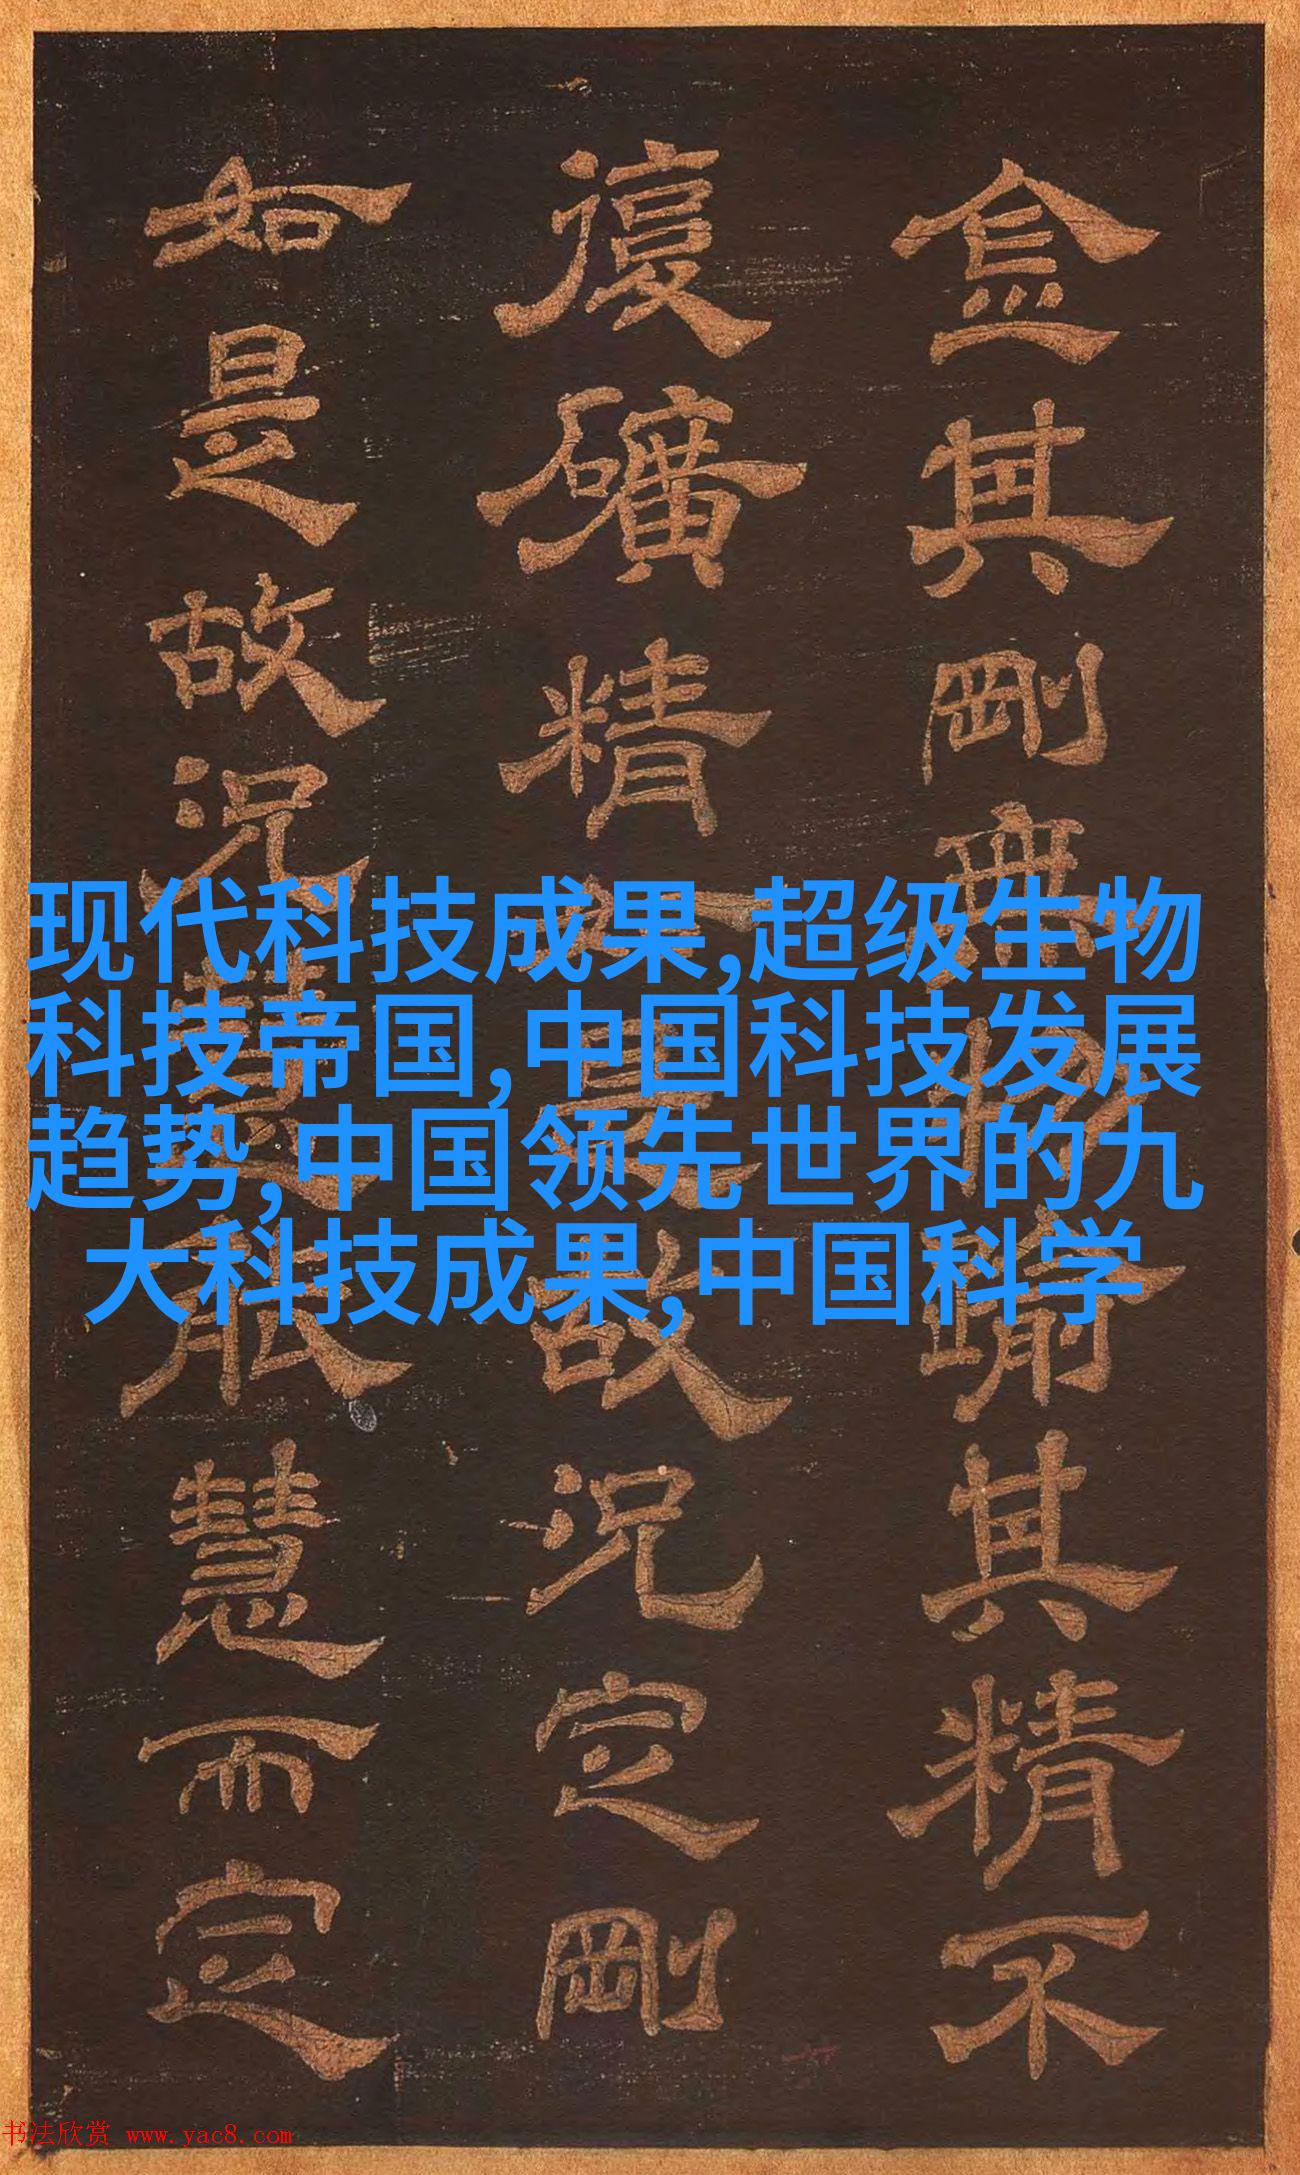 金其剛無物踰其精不
復礦精是故況定剛
如是故況慧能慧而定
现代科技成果,超级生物
科技帝国,中国科技发展
趋势,中国领先世界的九
大科技成果,中国科学
书法欣赏 www.yac8.com